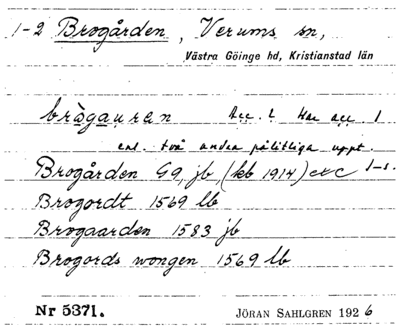 1-2 Brogården, Verums sn,
Västra Göinge hd, Kristianstad län
brògauren Acc. 2 Har acc. 1
enl. två andra pålitliga uppt.
Brogården G9, jb (kb 1914) etc 1-s.
Brogordt 1569 lb
Brogaarden 1583 jb
Brogords wongen 1569 lb
Nr 5371. JÖRAN SAHLGREN 1926